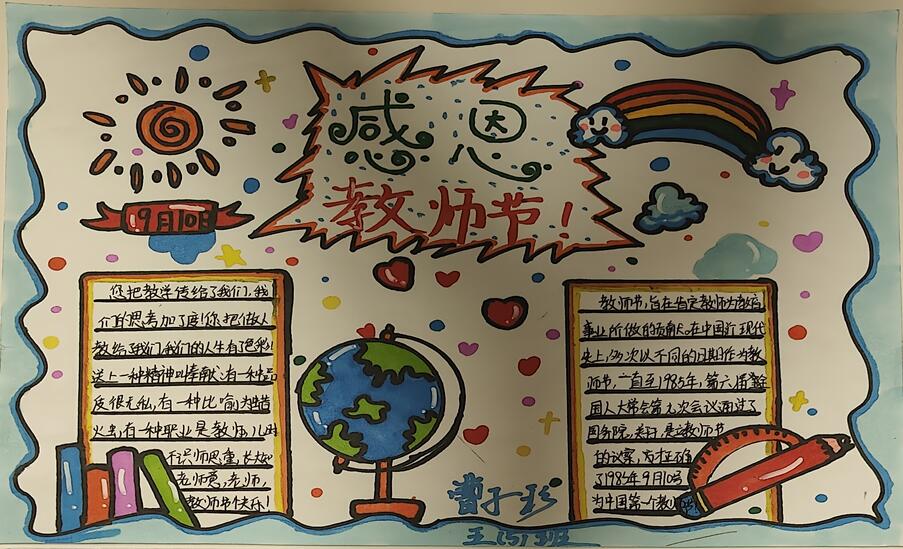 感恩
教师节!
9月10日
您把教学传给了我们,我
们的思考加了度!你把做人
教给了我们,我们的人生有了色彩!
送上一种精神叫奉献;有一种品
反很无私,有一种比喻为蜡
火虫,有一种职业是教师,儿时
不识师恩重,长大知
老师意,老师,
教师节快乐!
教师节,旨在肯定教师为教育
事业所做的贡献.在中国近现代
史上,多次以不同的日期作为教
师节.一直至1985年,第六届全
国人大常会第九次会议通过了
国务院
的议案,
了1985年9月10日
为中国第一个教师节
五(5)班